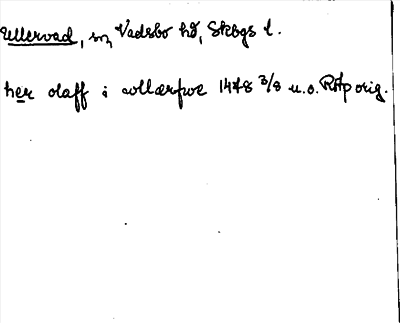 Ullervad, sn, Vadsbo hd, Skbgs l.
her olaff i wllærwe 1478 3/8 u.o. RAp orig.